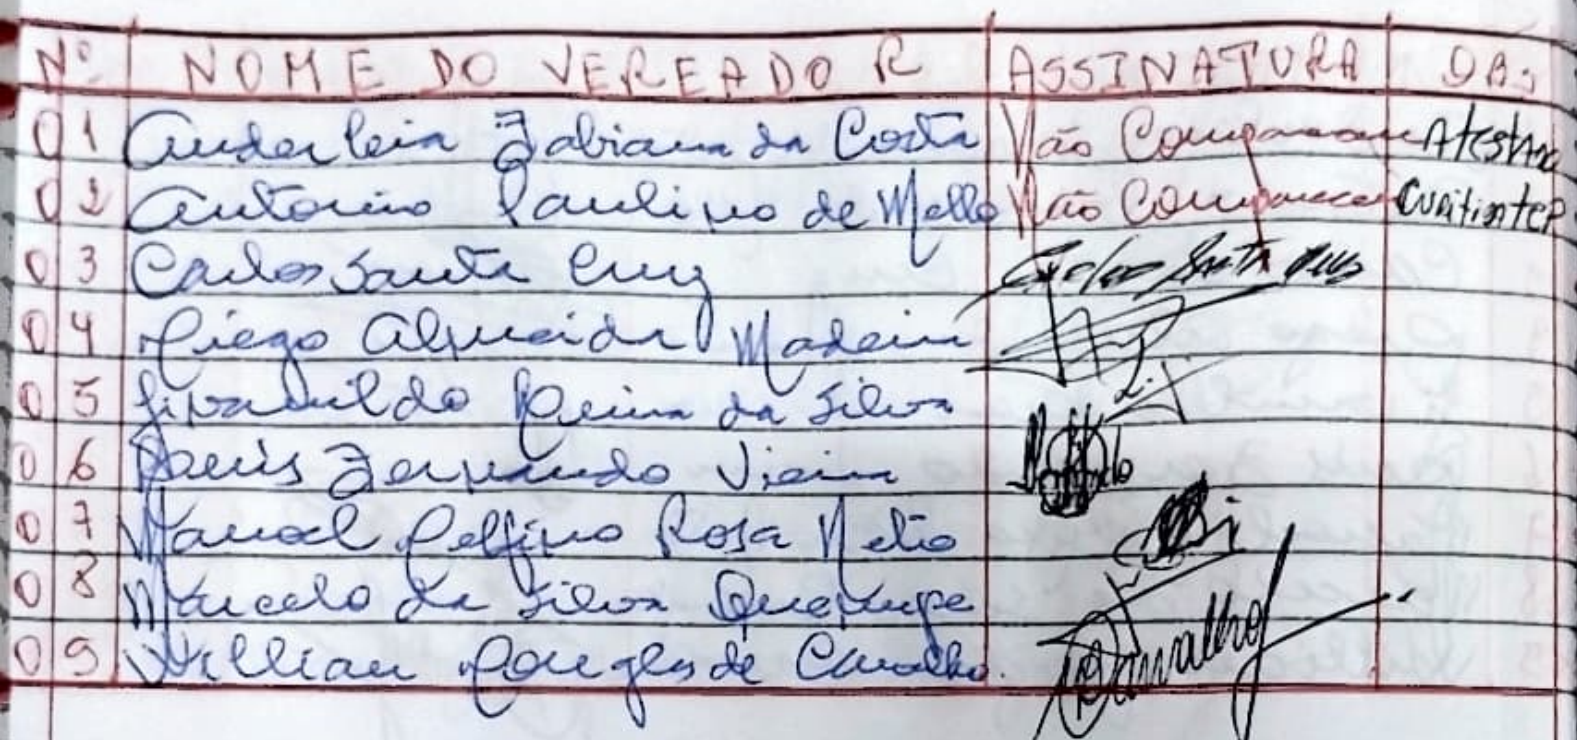 Nº NOME DO VEREADOR ASSINATURA OBS
01 Anderleia Fabiana da Costa Não Compareceu Atestado
02 Antonio Paulino de Mello Não Compareceu
03 Carlos Santa Cruz Carlos Santa Cruz
04 Diego Almeida Madeira
05 Givanildo da Silva
06 Denis Fernando Vieira
07 Manoel Delfino Rosa Neto
08 Marcelo da Silva
09 Willian Douglas de Carvalho Carvalho